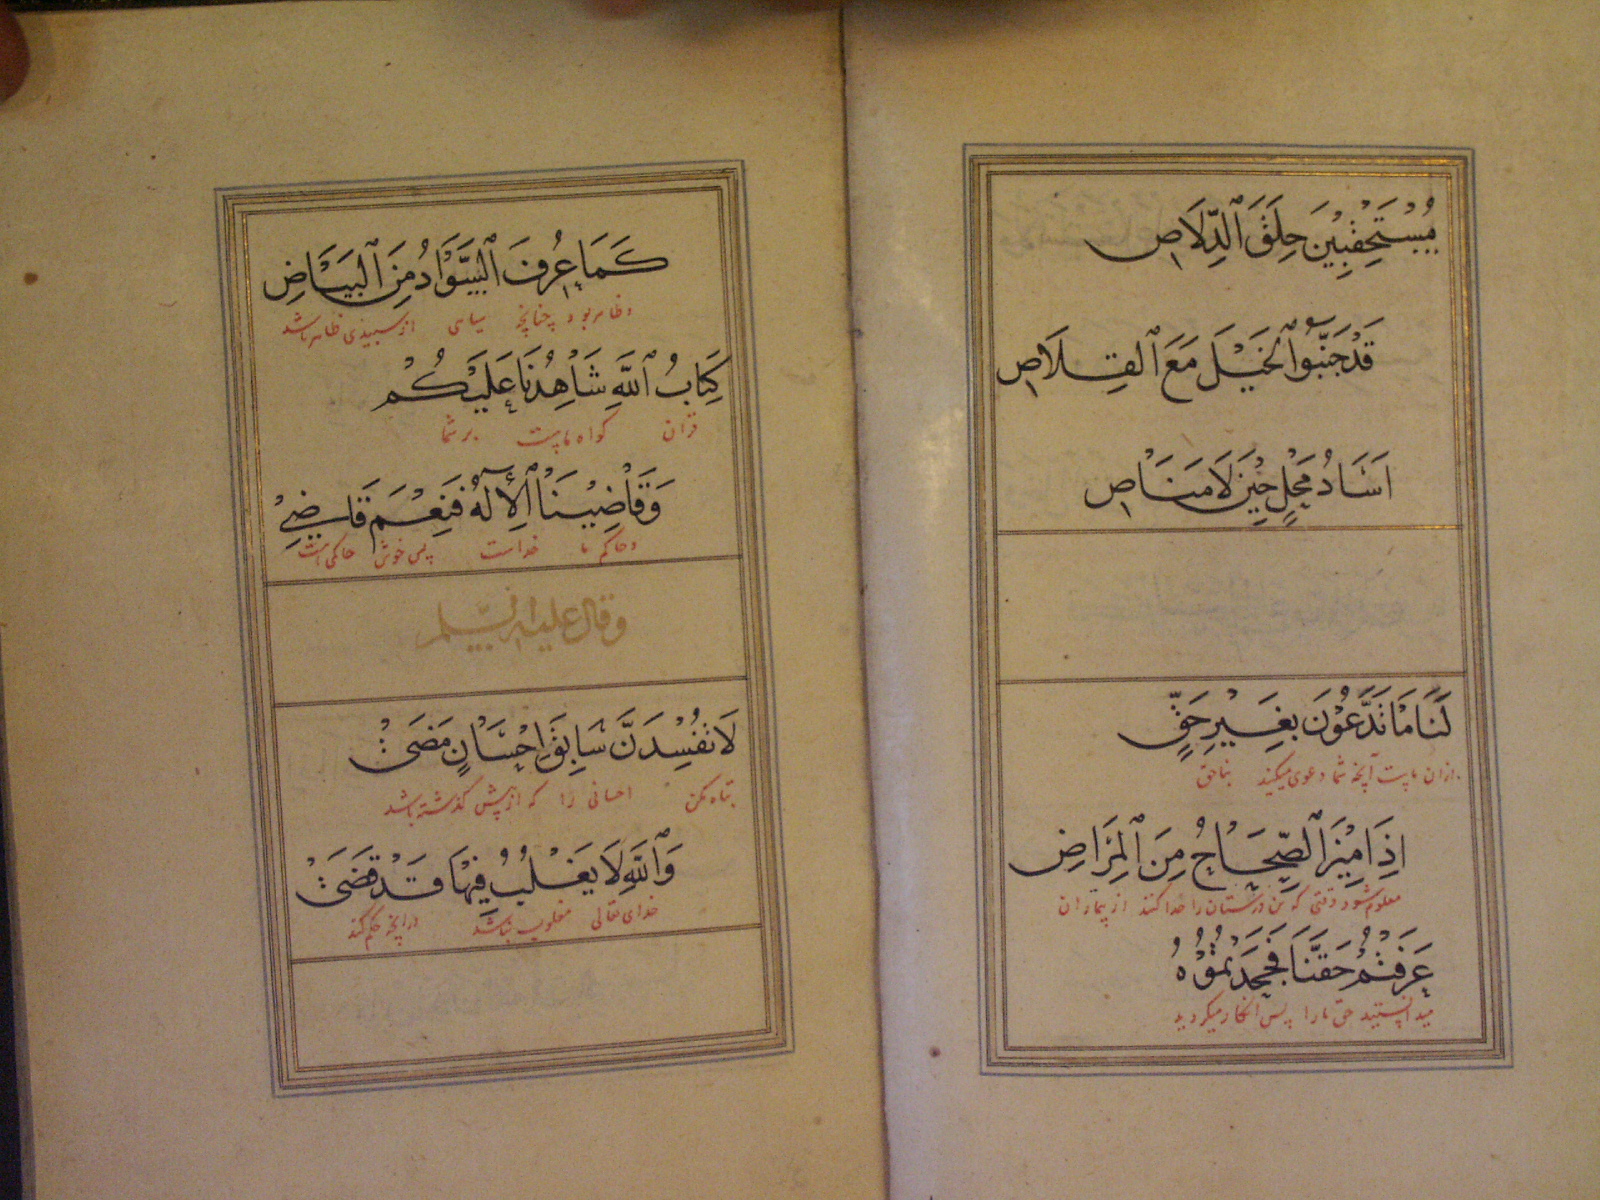 مُسْتَحْقِبِيْنَ حَلَقَ ٱلدِّلَاصِ
قَدْ جَنَّبُوا ٱلْخَيْلَ مَعَ ٱلْقِلَاصِ
اٰسَادُ مَحْلٍ حِيْنَ لَا مَنَاصِ
لَنَا مَا تَدَّعُوْنَ بِغَيْرِ حَقٍّ
ازان ماست آنچه شما دعوی میکنید بناحق
اِذَا مِيْزَ ٱلصِّحَاحُ مِنَ ٱلْمِرَاضِ
معلوم شود وقتی که تن درستان را جدا کنند از بیماران
عَرَفْتُمْ حَقَّنَا فَجَحَدْتُمُوْهُ
میدانستید حق مارا پس انکار میکردید
كَمَا عُرِفَ ٱلسَّوَادُ مِنَ ٱلْبَيَاضِ
و ظاهر بود چنانچه سیاهی از سپیدی ظاهر باشد
كِتَابُ ٱللّٰهِ شَاهِدُنَا عَلَيْكُمْ
قرآن گواه ماست بر شما
وَقَاضِيْنَا ٱلْاِلٰهُ فَنِعْمَ قَاضِيْ
و حاکم ما خداست پس خوش حاکمی است
وقال علیه السلم
لَا تُفْسِدَنَّ سَابِقَ اِحْسَانٍ مَضٰى
تباه مکن احسانی را که از پیش گذشته باشد
وَٱللّٰهِ لَا يَغْلُبُ فِيْهَا قَدْ قَضٰى
خدای تعالی مغلوب نباشد درانچه حکم کند